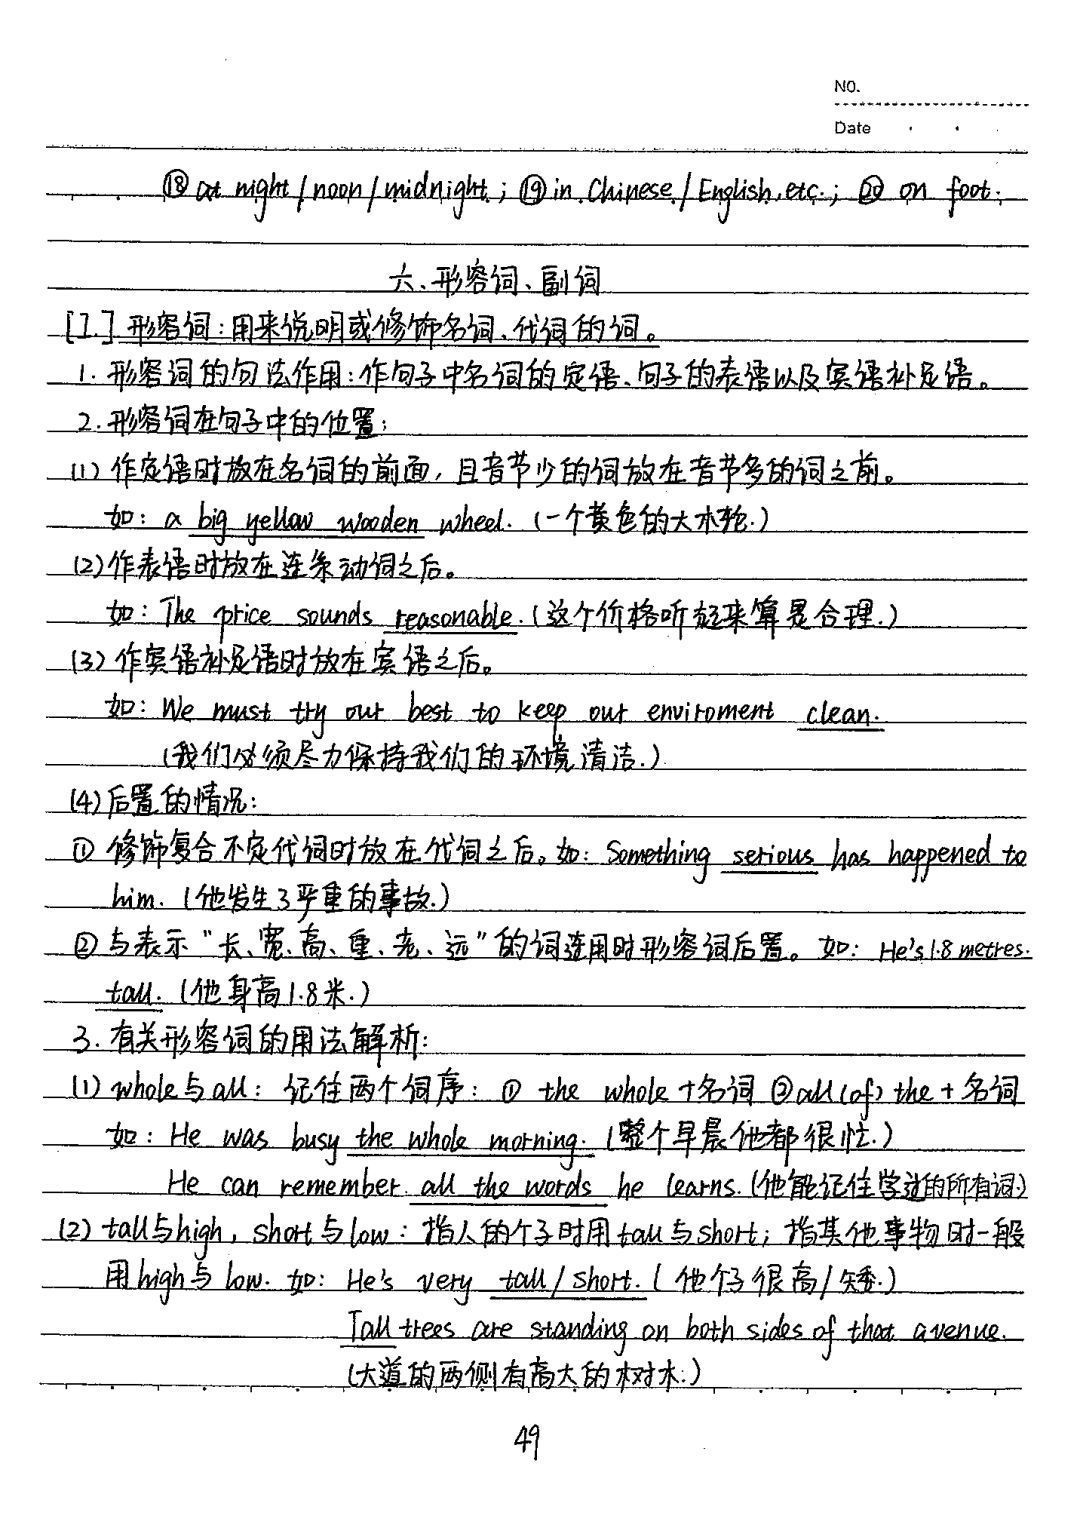 NO.
Date
⑱ at night/noon/midnight; ⑲ in Chinese/English, etc.; ⑳ on foot.
六、形容词、副词
[I.] 形容词:用来说明或修饰名词、代词的词。
1. 形容词的句法作用:作句子中名词的定语、句子的表语以及宾语补足语。
2. 形容词在句子中的位置:
(1) 作定语时放在名词的前面,且音节少的词放在音节多的词之前。
如: a big yellow wooden wheel. (一个黄色的大木轮.)
(2) 作表语时放在连系动词之后。
如: The price sounds reasonable. (这个价格听起来算是合理.)
(3) 作宾语补足语时放在宾语之后。
如: We must try our best to keep our enviroment clean.
(我们必须尽力保持我们的环境清洁.)
(4) 后置的情况:
① 修饰复合不定代词时放在代词之后。如: Something serious has happened to
him. (他发生了严重的事故.)
② 与表示“长、宽、高、重、老、远”的词连用时形容词后置。如: He's 1.8 metres.
tall. (他身高1.8米.)
3. 有关形容词的用法解析:
(1) whole与all: 记住两个词序: ① the whole +名词 ② all (of) the + 名词
如: He was busy the whole morning. (整个早晨他都很忙.)
He can remember all the words he learns. (他能记住学过的所有词.)
(2) tall与high, short与low: 指人的个子时用tall与short; 指其他事物时一般
用high与low. 如: He's very tall/short. (他个子很高/矮.)
Tall trees are standing on both sides of that avenue.
(大道的两侧有高大的树木.)
49